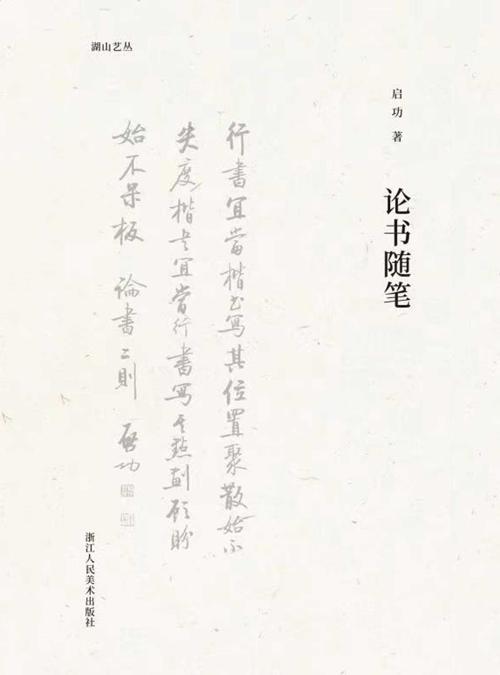 湖山艺丛
启功 著
论书随笔
行書宜當楷书寫其位置聚散始不
失度楷书宜當行書寫其點劃顧盼
始不呆板 論書二則 启功
浙江人民美术出版社